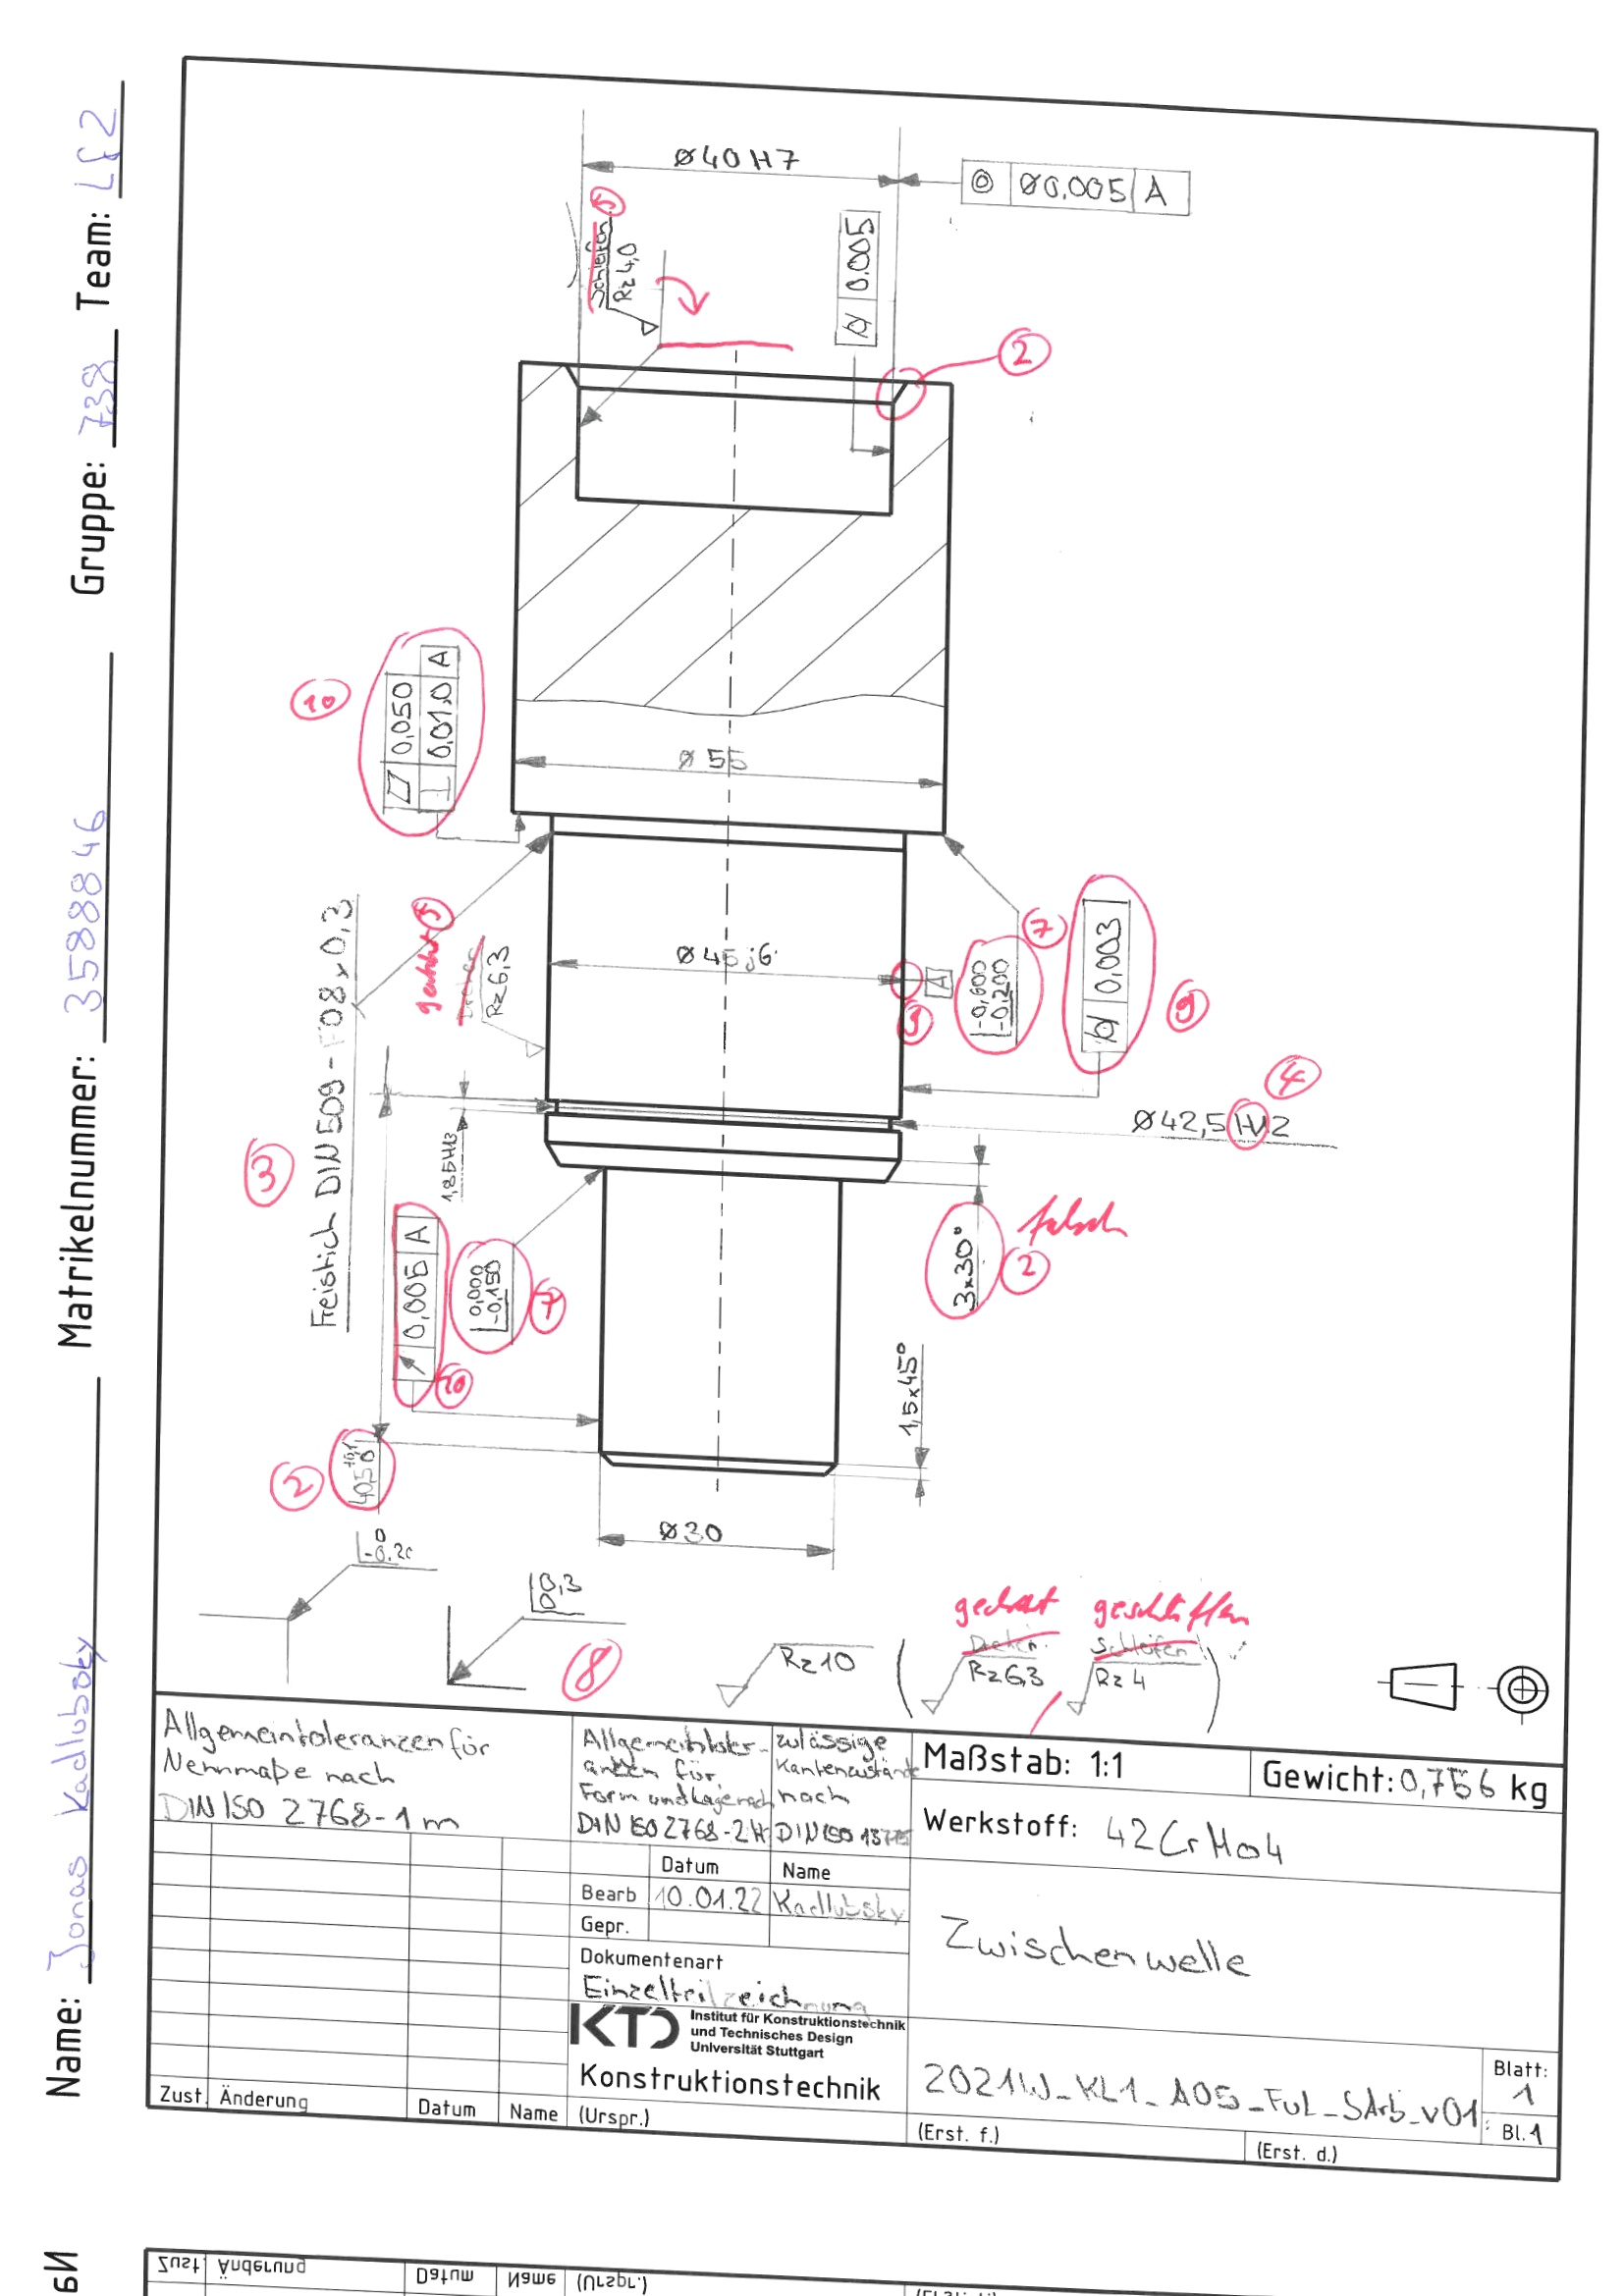 Name: Jonas Kadlubsky Matrikelnummer: 3588846 Gruppe: 738 Team:
Ø40H7
◎ Ø0.005 A
5
Schleifen
Rz 4,0
⌭ 0.005
2
10
⏥ 0,050
⊥ 0,010 A
Ø 55
Freistich DIN 509 - F08x0,3
3
5
Rz 6,3
Ø45 j6
A
9
-0,600
-0,200
7
⌭ 0,003
9
4
Ø42,5 H12
1,85 H13
falsch
3x30°
2
↗ 0,005 A
10
0,000
-0,150
7
1,5x45°
2
40,5 +0,1 0
Ø30
0
0,3
0
8
Rz10
( gedreht geschliffen
Drehen Schleifen
Rz6,3 Rz 4 )
Allgemeintoleranzen für
Nennmaße nach
DIN ISO 2768-1 m
Allgemeintoler-
anzen für
Form und Lage nach
DIN ISO 2768-2H
zulässige
Kantenzustände
nach
DIN ISO 13715
Maßstab: 1:1
Gewicht: 0,756 kg
Werkstoff: 42CrMo4
Datum Name
Bearb 10.01.22 Kadlubsky
Gepr.
Dokumentenart
Einzelteilzeichnung
Zwischenwelle
KTD Institut für Konstruktionstechnik
und Technisches Design
Universität Stuttgart
Konstruktionstechnik
2021W_KL1_A05_FuL_SArb_v01
Blatt:
1
Bl. 1
Zust. Änderung Datum Name (Urspr.)
(Erst. f.) (Erst. d.)
Zust. Änderung Datum Name (Urspr.)